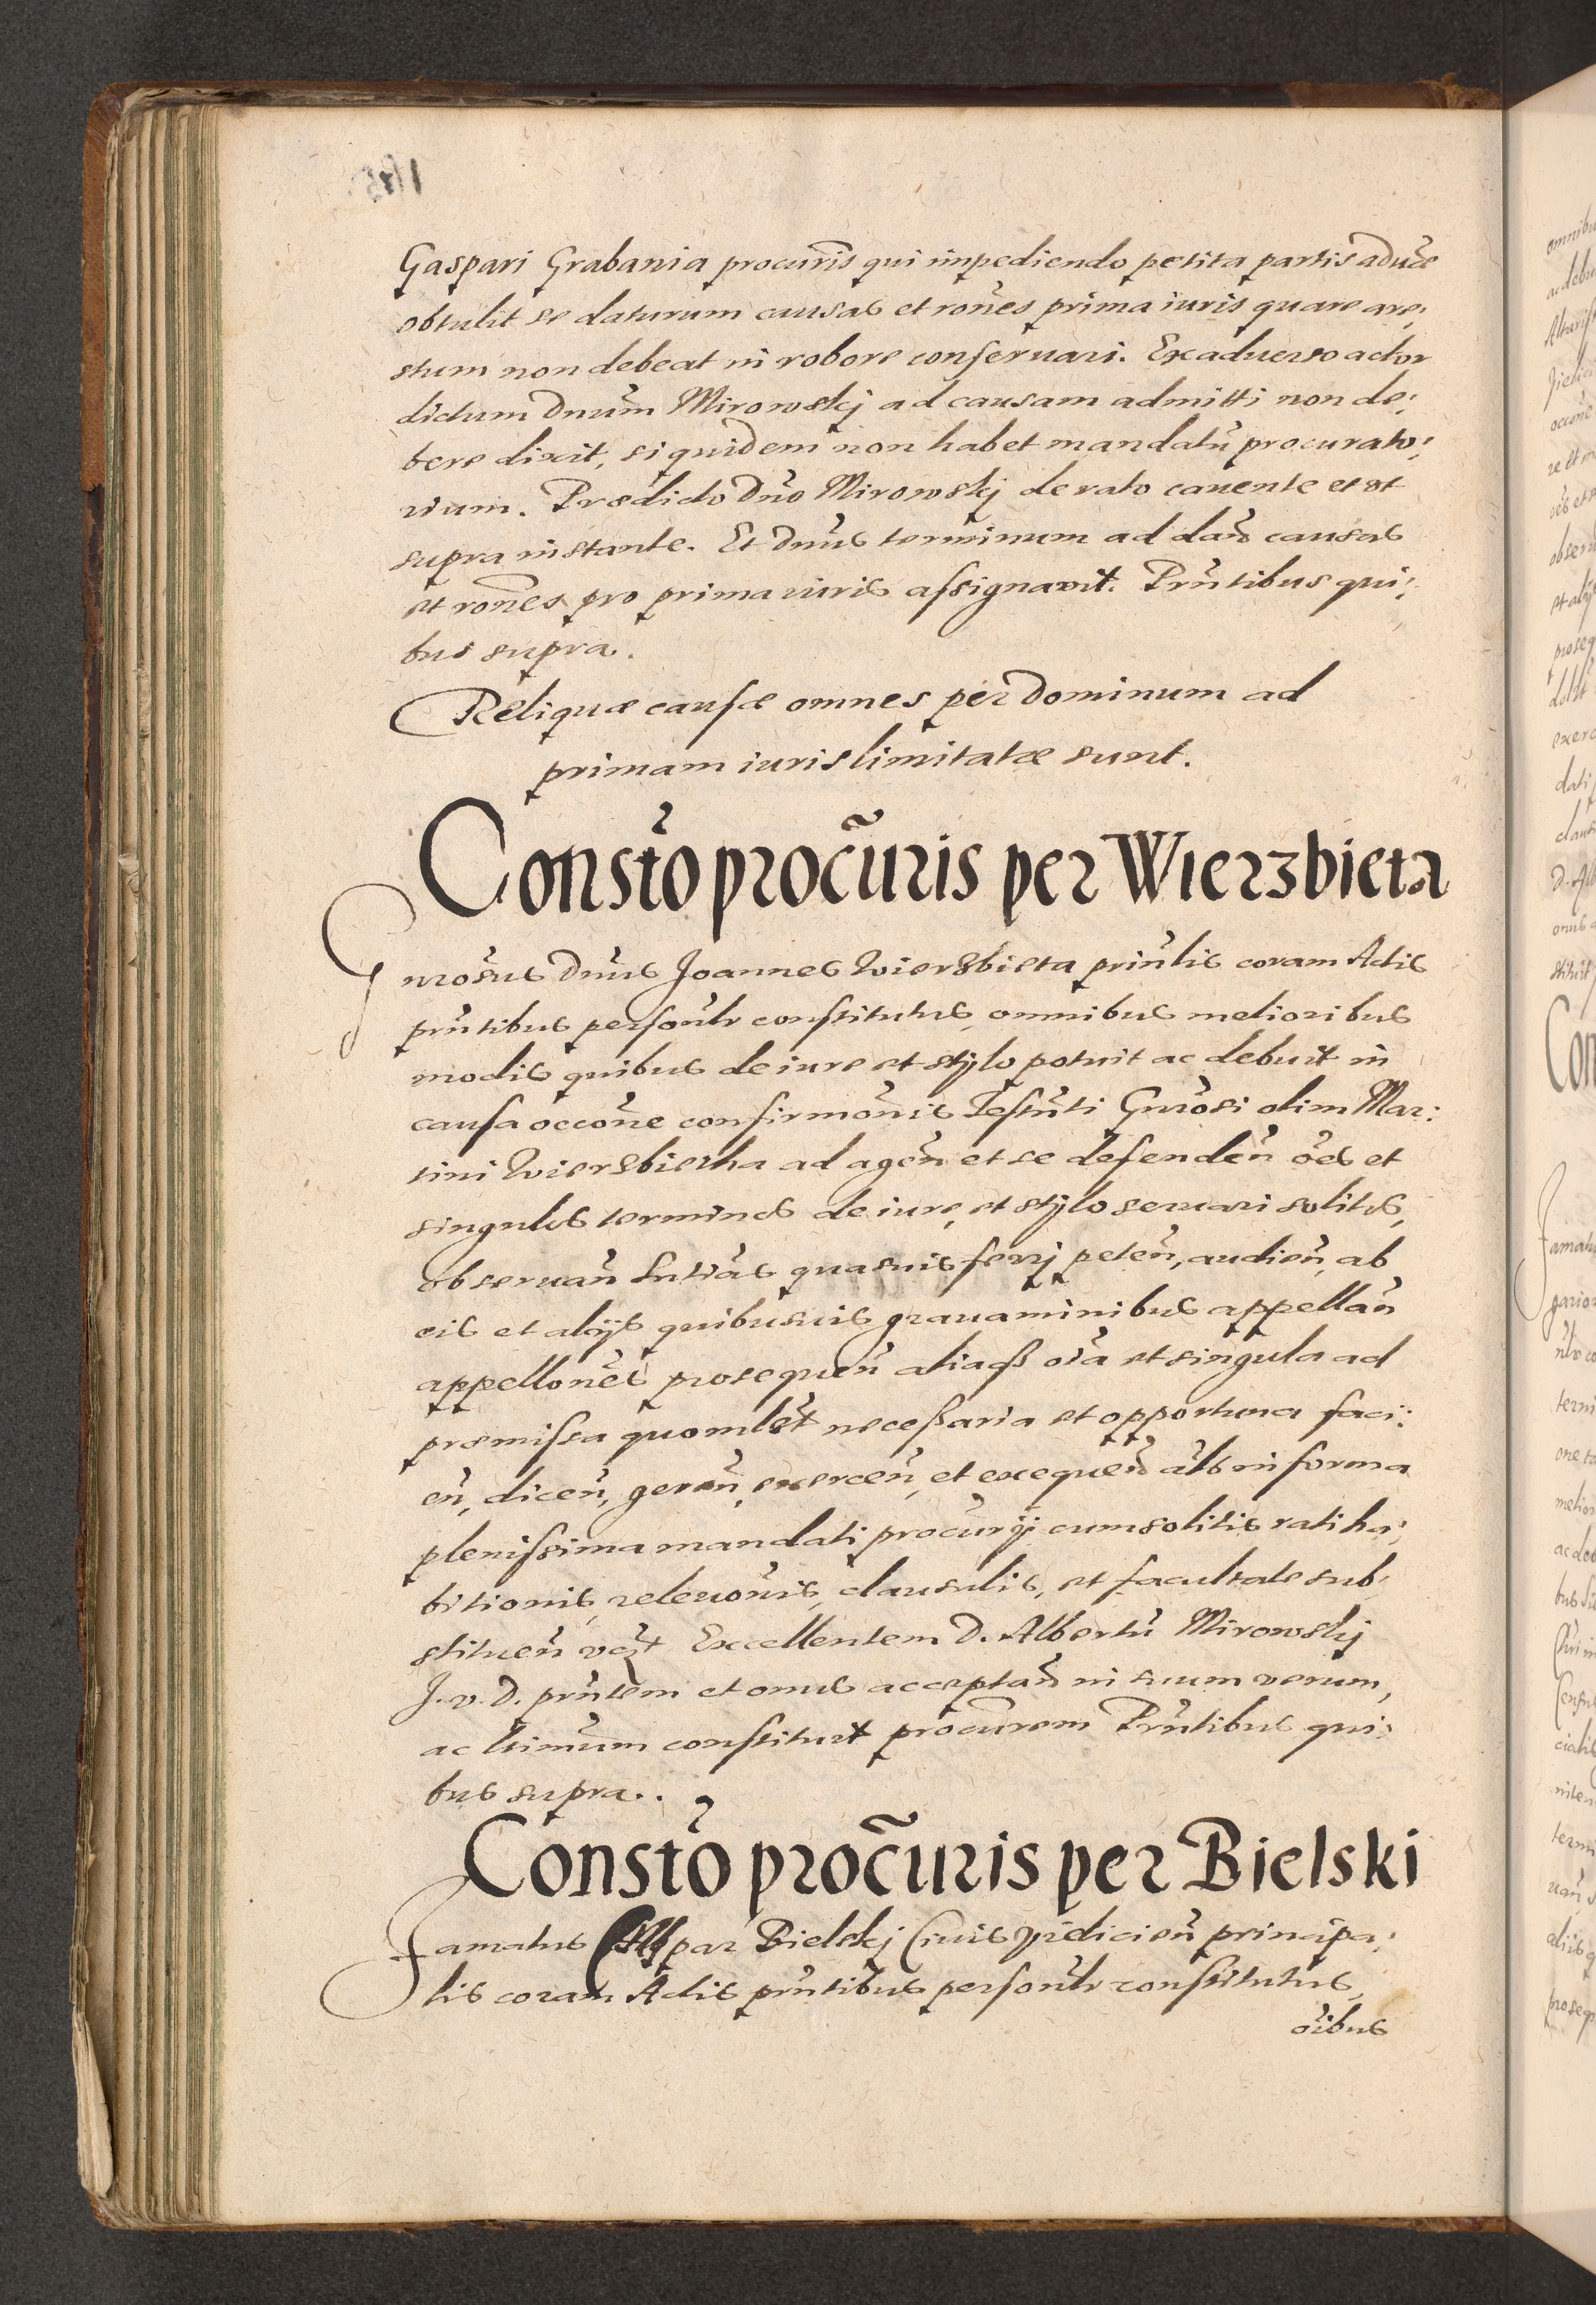 Gaspari Grabania procuris qui impediendo petita partis aduse
obtulit se daturum causas et rones prima iuris quare are,
stum non debeat in robore conseruari. Ex aduerso actor
dictum Dnum Mirowskj ad causam admitti non de,
bere dixit, siquidem non habet mandatu procurato,
rium. Prædicto Dno Mirowskj de rato cauente et ut
supra instante. Et Dnus terminum ad dan causas
et rones pro prima iuris assignavit. Pntibus qui,
bus supra.
Reliquæ causæ omnes per Dominum ad
primam iuris limitatæ sunt.
Constõ procuris per Wierzbieta
Gnrosus Dnus Joannes Wierzbieta prinlis coram Actis
pntibus personlr constitutus, omnibus melioribus
modis quibus de iure et stylo potuit ac debuit in
causa occone confirmonis Testnti Gnrosi olim Mar:
tini Wierzbietha ad agen et se defenden oes et
singulos terminos de iure, et stylo seruari solitos,
obseruan sntias quasuis ferrj peten, audien, ab
eis et alijs quibusuis grauaminibus appellan
appellones prosequen aliasq oia et singula ad
præmissa quomlbt necessaria et opportuna faci:
en, dicen, geren, exercen, et exequen als in forma
plenissima mandati procurij cum solitis ratiha,
bitionis, releuonis, clausulis, et facultate sub,
stituen vczt Excellentem D. Albertu Mirowskj
J. v. D. pntem et onus acceptan in suum verum,
ac ltimum constituit procurem Pntibus qui,
bus supra..
Constõ procuris per Bielski
Famatus Caspar Bielskj Ciuis Vidicien principa,
lis coram Actis pntibus personlr constitutus,
oibus